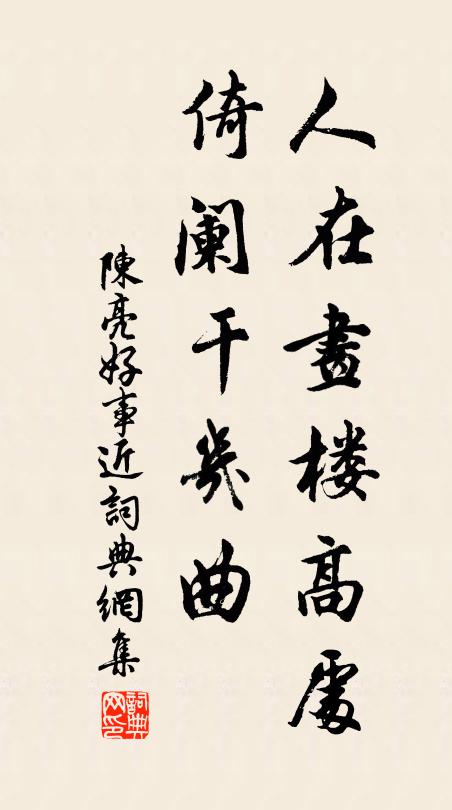 人在畫楼高處
倚阑干幾曲
陳亮好事近詞典網集
詞典网印